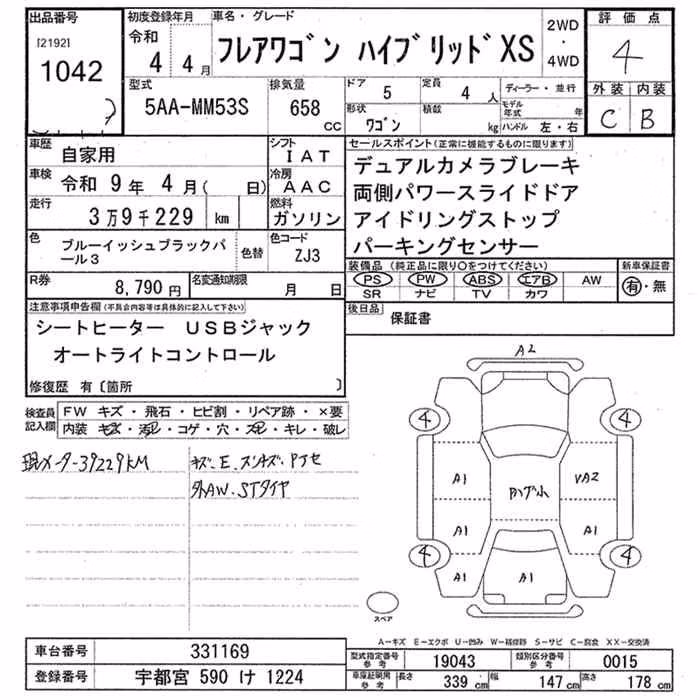 出品番号
[2192]
1042
初度登録年月
令和
4 4 月
車名・グレード
フレアワゴン ハイブリッドXS
2WD
・
4WD
評価点
4
外装 内装
C B
型式
5AA-MM53S
排気量
658
CC
ドア
5
定員
4 人
形状
ワゴン
積載
kg
ディーラー・並行
モデル年式 年
ハンドル 左・右
車歴
自家用
シフト
IAT
車検
令和 9 年 4 月( 日)
冷房
AAC
走行
3 万 9 千 229 km
燃料
ガソリン
色
ブルーイッシュブラックパール3
色替
色コード
ZJ3
R券
8,790 円
名変通知期限
月 日
セールスポイント(正常に機能するものに限ります)
デュアルカメラブレーキ
両側パワースライドドア
アイドリングストップ
パーキングセンサー
装備品 (純正品に限り○をつけてください)
PS PW ABS エアB AW
SR ナビ TV カワ
新車保証書
有・無
後日品
保証書
注意事項申告欄(不具合内容等は具体的に記入して下さい)
シートヒーター USBジャック
オートライトコントロール
修復歴 有〔箇所 〕
検査員記入欄
FW キズ・飛石・ヒビ割・リペア跡・×要
内装 キズ・汚レ・コゲ・穴・スレ・キレ・破レ
現メーター39229KM
キズ、E、
外AW、STタイヤ
A2
4 4
A1 VA2
A1 A1
4 4
A1 A1
スペア
A-キズ E-エクボ U-凹み W-補修跡 S-サビ C-腐食 XX-交換済
車台番号
331169
登録番号
宇都宮 590 け 1224
型式指定番号 参考
19043
類別区分番号 参考
0015
車庫証明用 参考
長さ 339 cm
幅 147 cm
高さ 178 cm